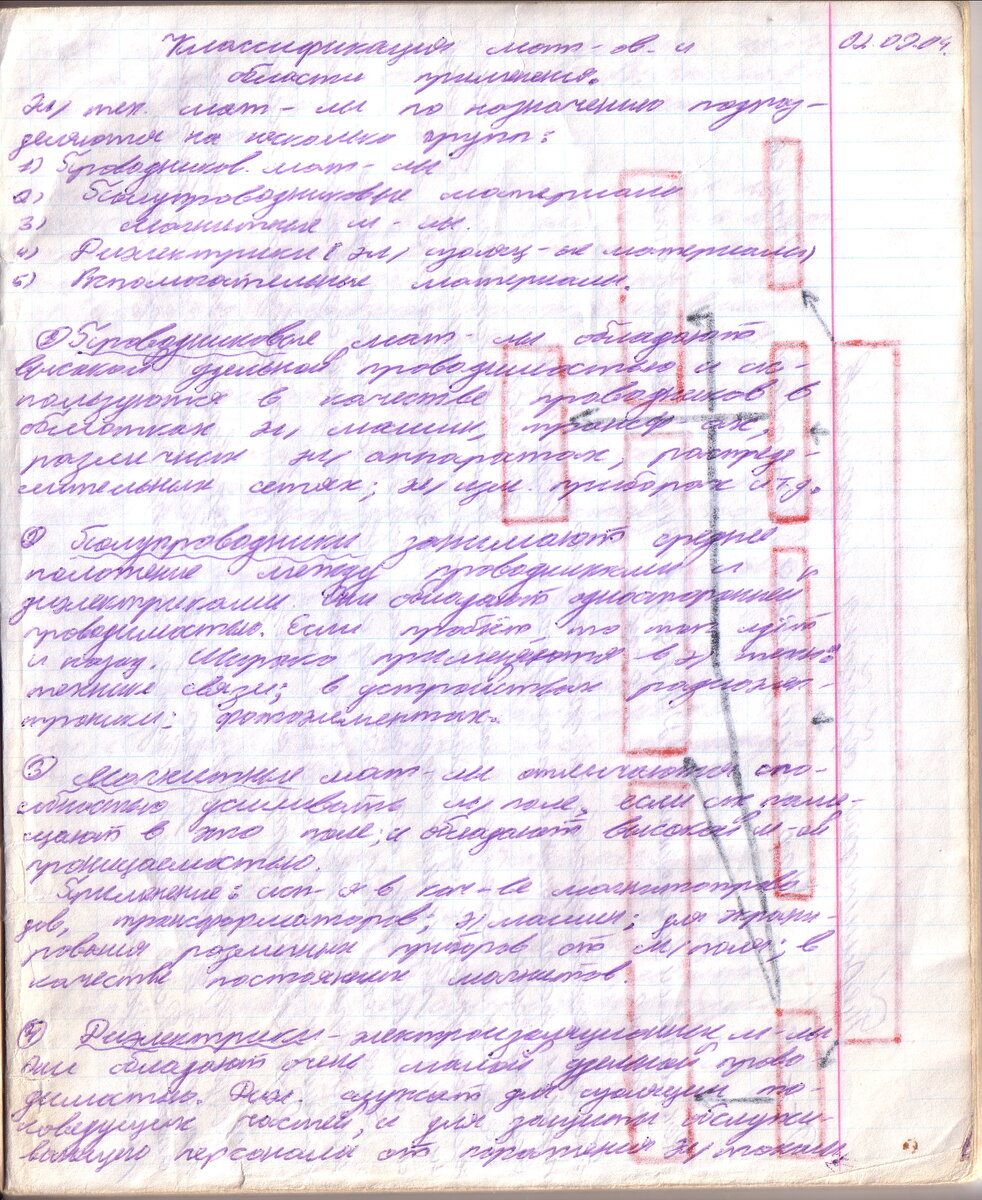 Классификация мат-ов и 02.09.04.
области применения.
Эл/ тех. мат-лы по назначению подраз-
деляются на несколько групп:
1) Проводников. мат-лы
2) Полупроводниковые материалы
3) Магнитные м-лы.
4) Диэлектрики (эл/ изоляц-ые материалы)
5) Вспомогательные материалы.
① Проводниковые мат-лы обладают
высокой удельной проводимостью и ис-
пользуются в качестве проводников в
обмотках эл/ машин, трансф-ах,
различных эл/ аппаратах, распреде-
лительных сетях; эл/ изм приборах и т.д.
② Полупроводники занимают среднее
положение между проводниками и
диэлектриками. Они обладают односторонней
проводимостью. Если пробьёт, то ток идёт
и назад. Широко применяются в эл/ техн:
технике связи; в устройствах радиоэлек-
троники; фотоэлементах.
③ Магнитные мат-лы отличаются спо-
собностью усиливать м/ поле, если их поме-
щают в это поле; и обладают высокой м-ой
проницаемостью.
Применение: исп-я в кач-ве магнитопрово-
дов, трансформаторов; эл/ машин; для экрани-
рования различных приборов от м/ поля; в
качестве постоянных магнитов.
④ Диэлектрики - электроизоляционные м-лы
Они обладают очень малой удельной прово-
димостью. Диэл. служат для изоляции то-
коведущих частей, и для защиты обслужи-
вающего персонала от поражения эл/ током.